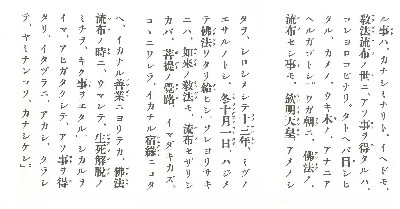 ル事ハ、カナシミナリト、イヘドモ、
敎法流布ノ世ニ、アフ事ヲ得タルハ、
コレヨロコビナリ。タトヘバ目シヒ
タル、カメノ、ウキ木ノ、アナニア
ヘルガゴトシ。ワガ朝ニ、佛法ノ、
流布セシ事モ、欽明天皇、アメノシ
タヲ、シロシメシテ十三年、ミヅノ
エサルノトシ、冬十月一日、ハジメ
テ佛法ワタリ給ヒシ、ソレヨリサキ
ニハ、如來ノ敎法モ、流布セザリシ
カバ、菩提ノ覺路、イマダキカズ。
コヽニワレラ、イカナル宿緣ニコタ
ヘ、イカナル善業ニヨリテカ、佛法
流布ノ時ニ、ウマレテ、生死解脫ノ
ミチヲ、キク事ヲエタル、シカルヲ
イマ、アヒガタクシテ、アフ事ヲ得
タリ、イタヅラニ、アカシ、クラシ
テ、ヤミナンコソ、カナシケレ」。